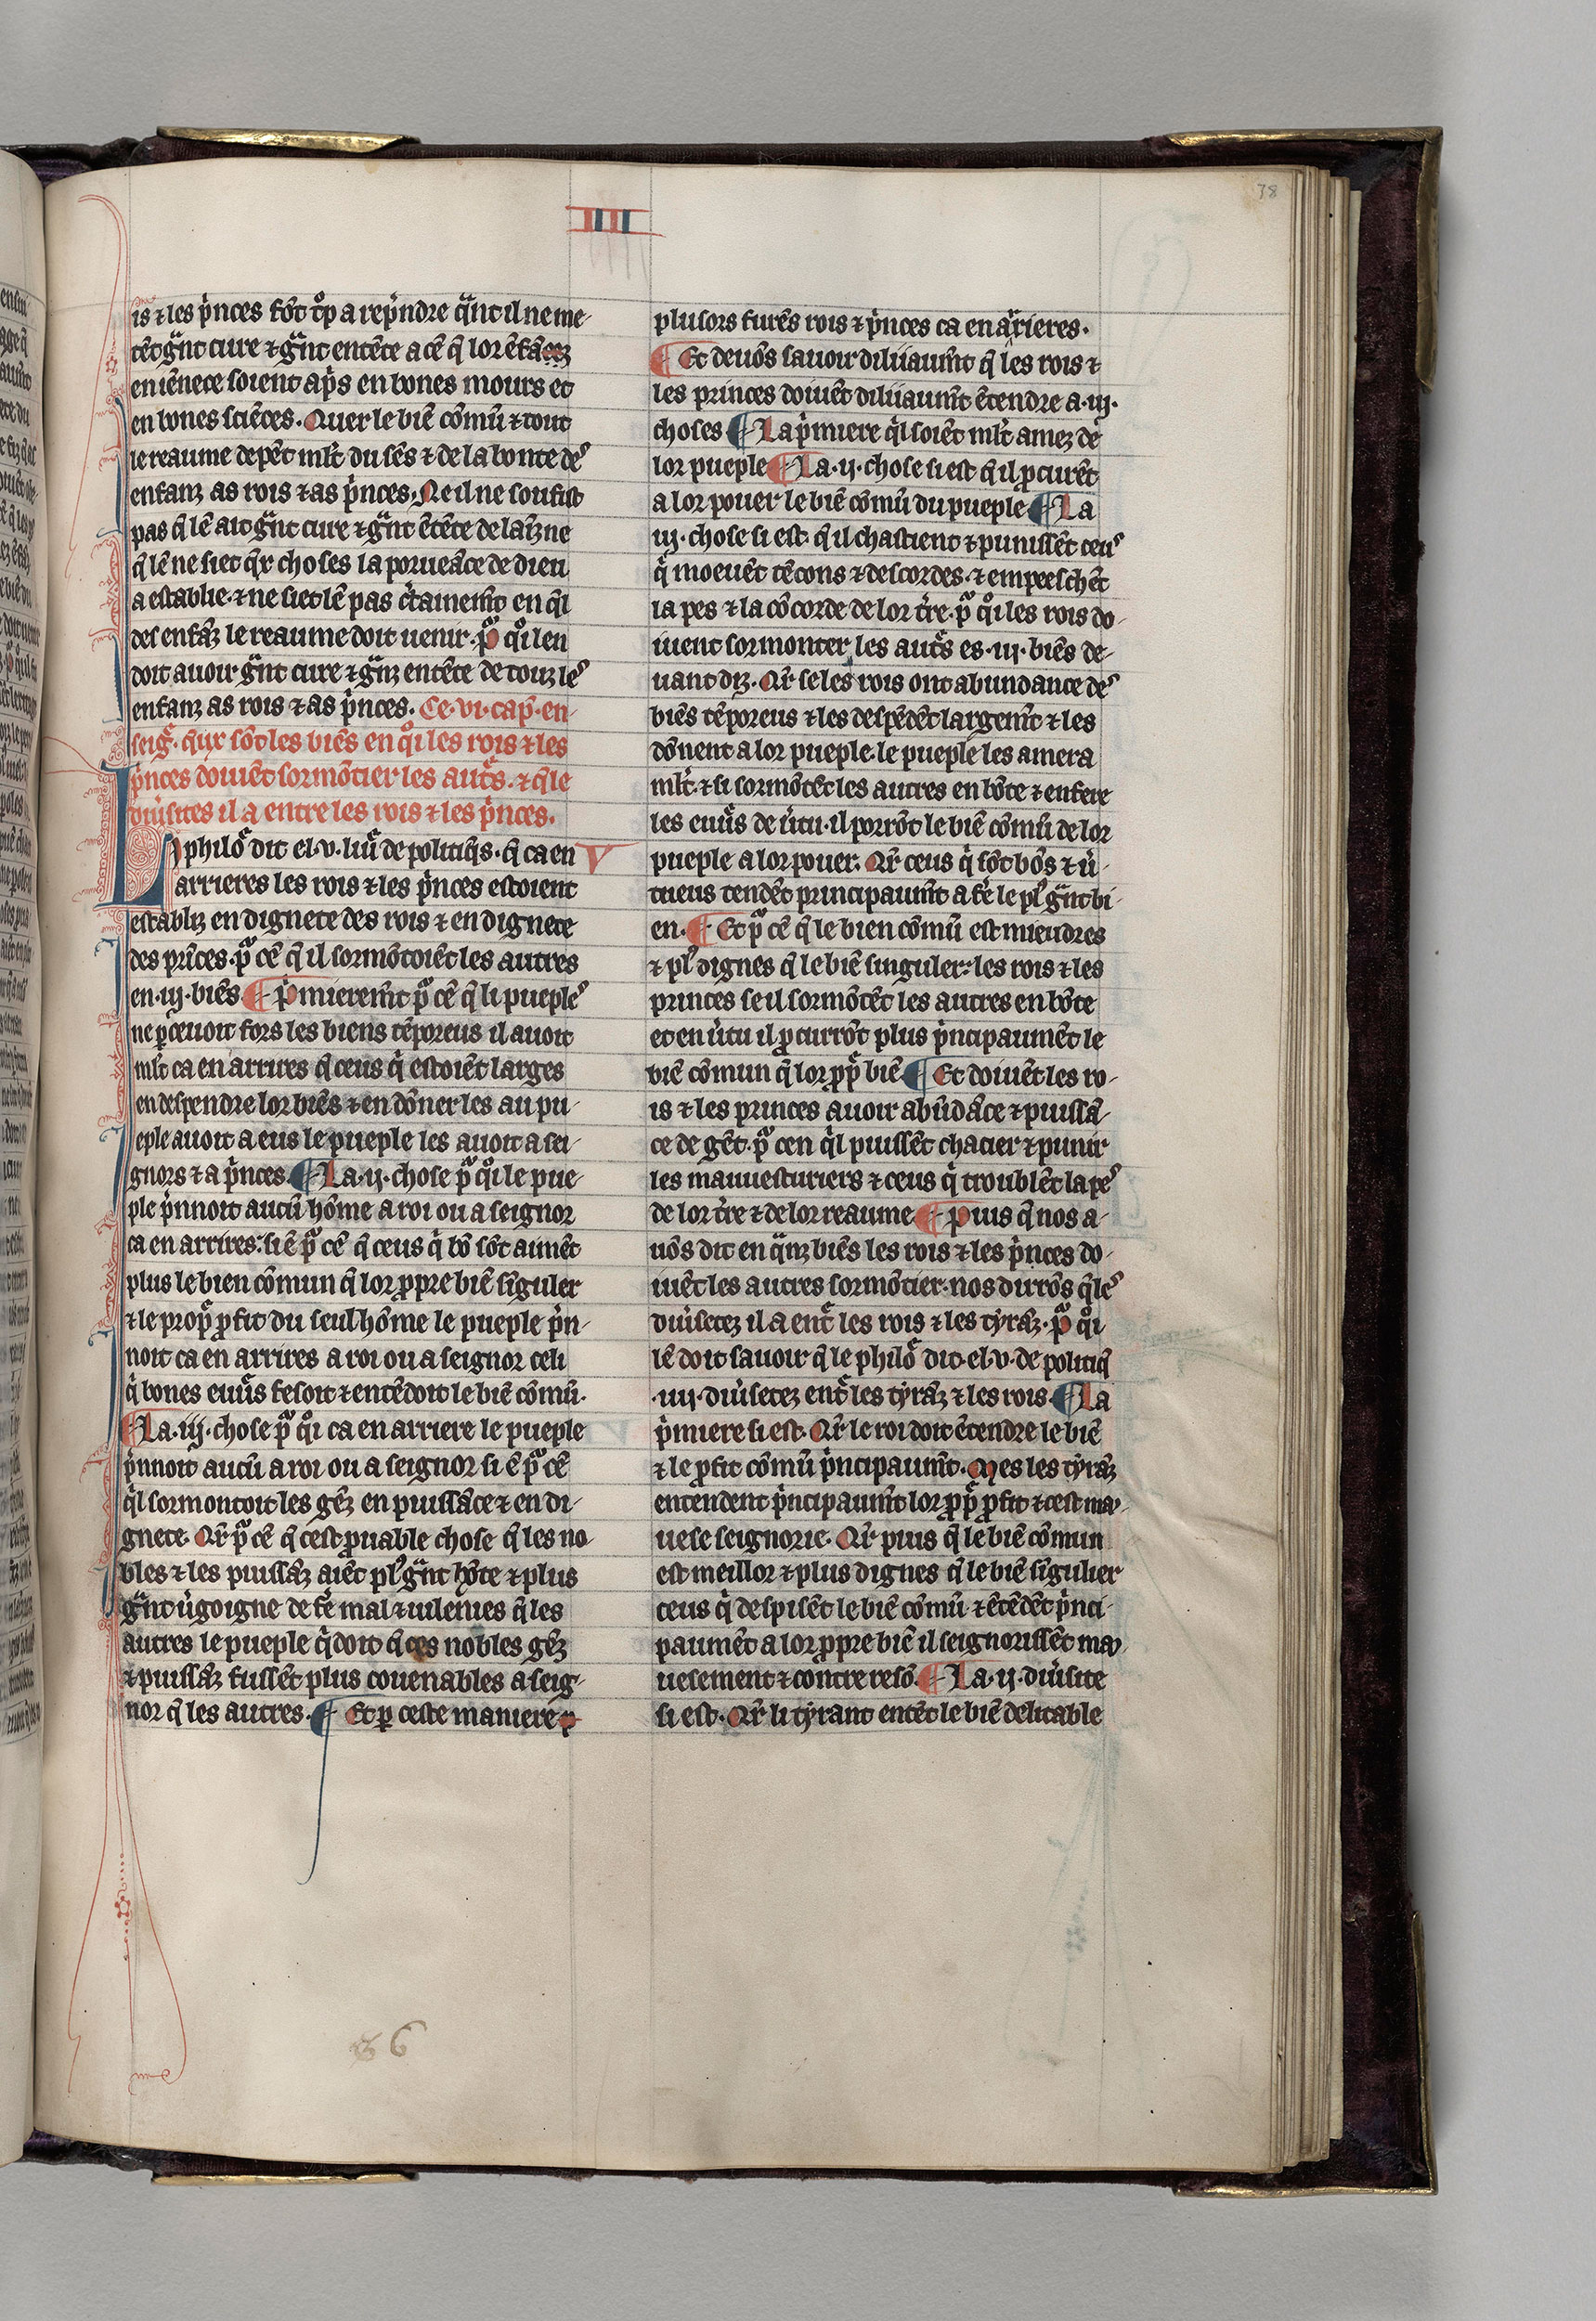 78
IIII
is ⁊ les pͥnces sōt tͦp a repͥndre qᷓnt il ne me-
tēt gᷓnt cure ⁊ gᷓnt entēte a cē q̄ lor ēfāz
en iēnece soient apͥs en bones mours et
en bones sciēces. Quer le biē cōmū ⁊ tout
le reaume depēt ml̄t du sēs ⁊ de la bonte des
enfanz as rois ⁊ as pͥnces. Ne il ne soufist
pas q̄ lē ait gᷓnt cure ⁊ gᷓnt ētēte de lainzne
q̄ lē ne siet qͥx choses la porueāce de dieu
a establie. ⁊ ne siet lē pas c̄tainem̄t en q̄l
des enfāz le reaume doit uenir. pᷓ qͦi len
doit auoir gᷓnt cure ⁊ gᷓnz entēte de touz les
enfanz as rois ⁊ as pͥnces. Ce .vi. cap̄. en-
seiḡ. qux sōt les biēs en qͦi les rois ⁊ les
pͥnces doiuēt sormōtier les autᷓs. ⁊ q̄le
diuͥsites il a entre les rois ⁊ les pͥnces.
LI philōᷓ dit el .v. liuᷓ de politiq̄s. q̄ ca en V
arrieres les rois ⁊ les pͥnces estoient
establiz en dignete des rois ⁊ en dignete
des prīces. pᷓ cē q̄ il sormōtoiēt les autres
en .iij. biēs ¶ pͥmierem̄t pᷓ cē q̄ li pueples
ne ꝑceuoit fors les biens tēporeus il auoit
ml̄t ca en arrires q̄ ceus qͥ estoiēt larges
en despendre lor biēs ⁊ en dōner les au pu-
eple auoit a eus le pueple les auoit a sei-
gnors ⁊ a pͥnces. ¶ La .ij. chose pᷓ qͦi le pue-
ple pͥnnoit aucū hōme a roi ou a seignor
ca en arrires: si ē pᷓ cē q̄ ceus qͥ bō sōt aimēt
plus le bien cōmun q̄ lor ꝓpre biē sīguler
⁊ le propᷓ ꝓfit du seul hōme le pueple pͥn-
noit ca en arrires a roi ou a seignor celi
qͥ bones euuᷓs fesoit ⁊ entēdoit le biē cōmū.
¶ La .iij. chose pᷓ qͦi ca en arriere le pueple
pͥnnoit aucū a roi ou a seignor si ē pᷓ cē
q̄l sormontoit les gēz en puissāce ⁊ en di-
gnete. Qr̄ pᷓ cē q̄ cest ꝓuable chose q̄ les no-
bles ⁊ les puissāz aiēt plꝰ gᷓnt hōte ⁊ plus
gᷓnt uͥgoigne de fē mal ⁊ uilenies q̄ les
autres le pueple qͥdoit q̄ ces nobles gēz
⁊ puissāz fussēt plus couenables a seig-
nor q̄ les autres. ¶ Et ꝑ ceste maniere
plusors furēs rois ⁊ pͥnces ca en aᷓrieres.
¶ Et deuōs sauoir diliiaum̄t q̄ les rois ⁊
les princes doiuēt diliiaum̄t ētendre a .iij.
choses ¶ La pͥmiere q̄l soiēt ml̄t amez de
lor pueple ¶ La .ij. chose si est q̄ il ꝓcurēt
a lor pouer le biē cōmū du pueple ¶ La
iij. chose si est q̄ il chastient ⁊ punissēt ceus
qͥ moeuēt tēcons ⁊ descordes. ⁊ empeeschēt
la pes ⁊ la cōcorde de lor t̄re. pᷓ qͦi les rois do-
iuent sormonter les autᷓs es .iij. biēs de-
uant diz. Qr̄ se les rois ont abundance des
biēs tēporeus ⁊ les despēdēt largem̄t ⁊ les
dōnent a lor pueple. le pueple les amera
ml̄t. ⁊ si sormōtēt les autres en bōte ⁊ en fere
les euuᷓs de uͥtu. il porrōt le biē cōmū de lor
pueple a lor pouer. Qr̄ ceus qͥ sōt bōs ⁊ uͥ-
tueus tendēt principaum̄t a fē le plꝰ gᷓnt bi-
en. ¶ Et pᷓ cē q̄ le bien cōmū est miendres
⁊ plꝰ dignes q̄ le biē singuler: les rois ⁊ les
princes se il sormōtēt les autres en bōte
et en uͥtu il ꝓcurrōt plus pͥncipaumēt le
biē cōmun q̄ lor ꝓpᷓ biē ¶ Et doiuēt les ro-
is ⁊ les princes auoir abūdāce ⁊ puissā-
ce de gēt. pᷓ cen q̄l puissēt chacier ⁊ punir
les mauuesturiers ⁊ ceus qͥ troublēt la pes
de lor t̄re ⁊ de lor reaume ¶ Puis q̄ nos a-
uōs dit en qᷓnz biēs les rois ⁊ les pͥnces do-
iuēt les autres sormōtier. nos dirrōs q̄les
diuͥsetez il a entᷓ les rois ⁊ les tyrāz. pᷓ qͦi
lē doit sauoir q̄ le philōᷓ dit. el .v. de politiq̄
.iiij. diuͥsetez entᷓ les tyrāz ⁊ les rois. ¶ La
pͥmiere si est. Qr̄ le roi doit ētendre le biē
⁊ le ꝓfit cōmū pͥncipaum̄t. Mes les tyrāz
entendent pͥncipaum̄t lor ꝓpᷓ ꝓfit ⁊ cest ma-
uese seignorie. Qr̄ puis q̄ le biē cōmun
est meillor ⁊ plus dignes q̄ le biē sīgulier
ceus qͥ despisēt le biē cōmū. ⁊ ētēdēt pͥnci-
paumēt a lor ꝓpre biē il seignorissēt mau
uesement ⁊ contre resō. ¶ La .ij. diuͥsite
si est. Qr̄ li tyrant entēt le biē delitable